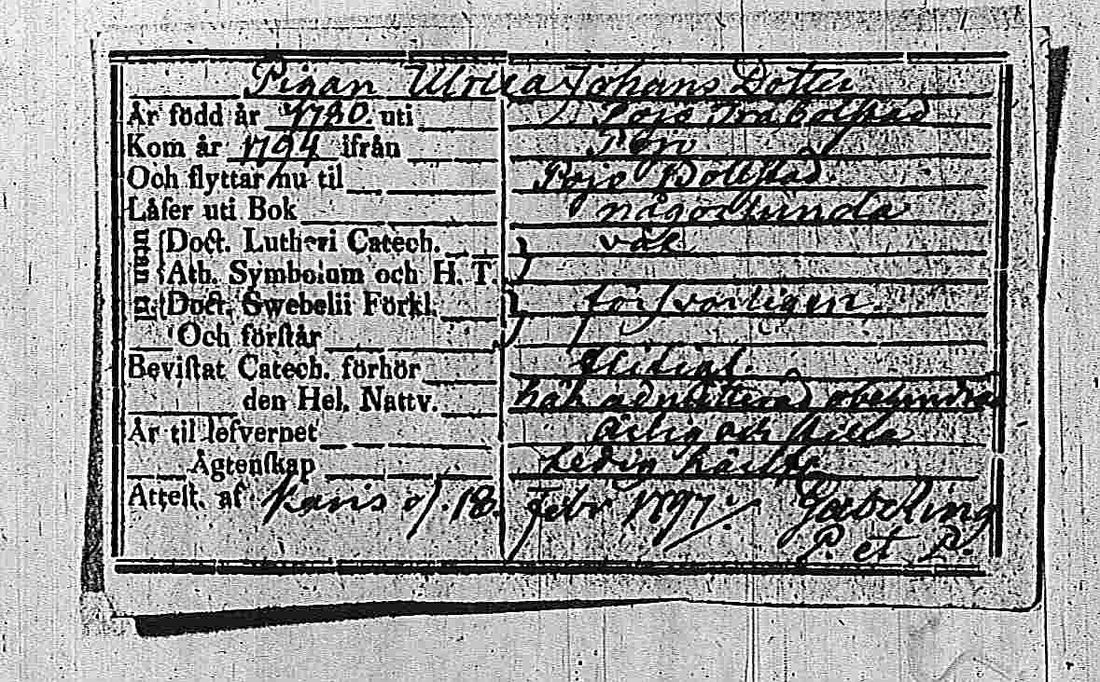 Pigan Ulrica Johans Dotter
Är född år 1780. uti Pojo
Kom år 1794 ifrån
Och flyttar nu til Pojo Bollstad.
Läſer uti Bok någorlunda
utan Doct. Lutheri Catech. väl
Ath. Symbolum och H. T.
Doct. Swebelii Förkl. förſvarligen.
Och förſtår
Beviſtat Catech. förhör fliticgt.
den Hel. Nattv. admitterad obehindrad
Är til lefvernet ärlig och ſtilla
Ägtenſkap Ledig
Atteſt. af Karis d. 18. Febr 1797.
P. et P.